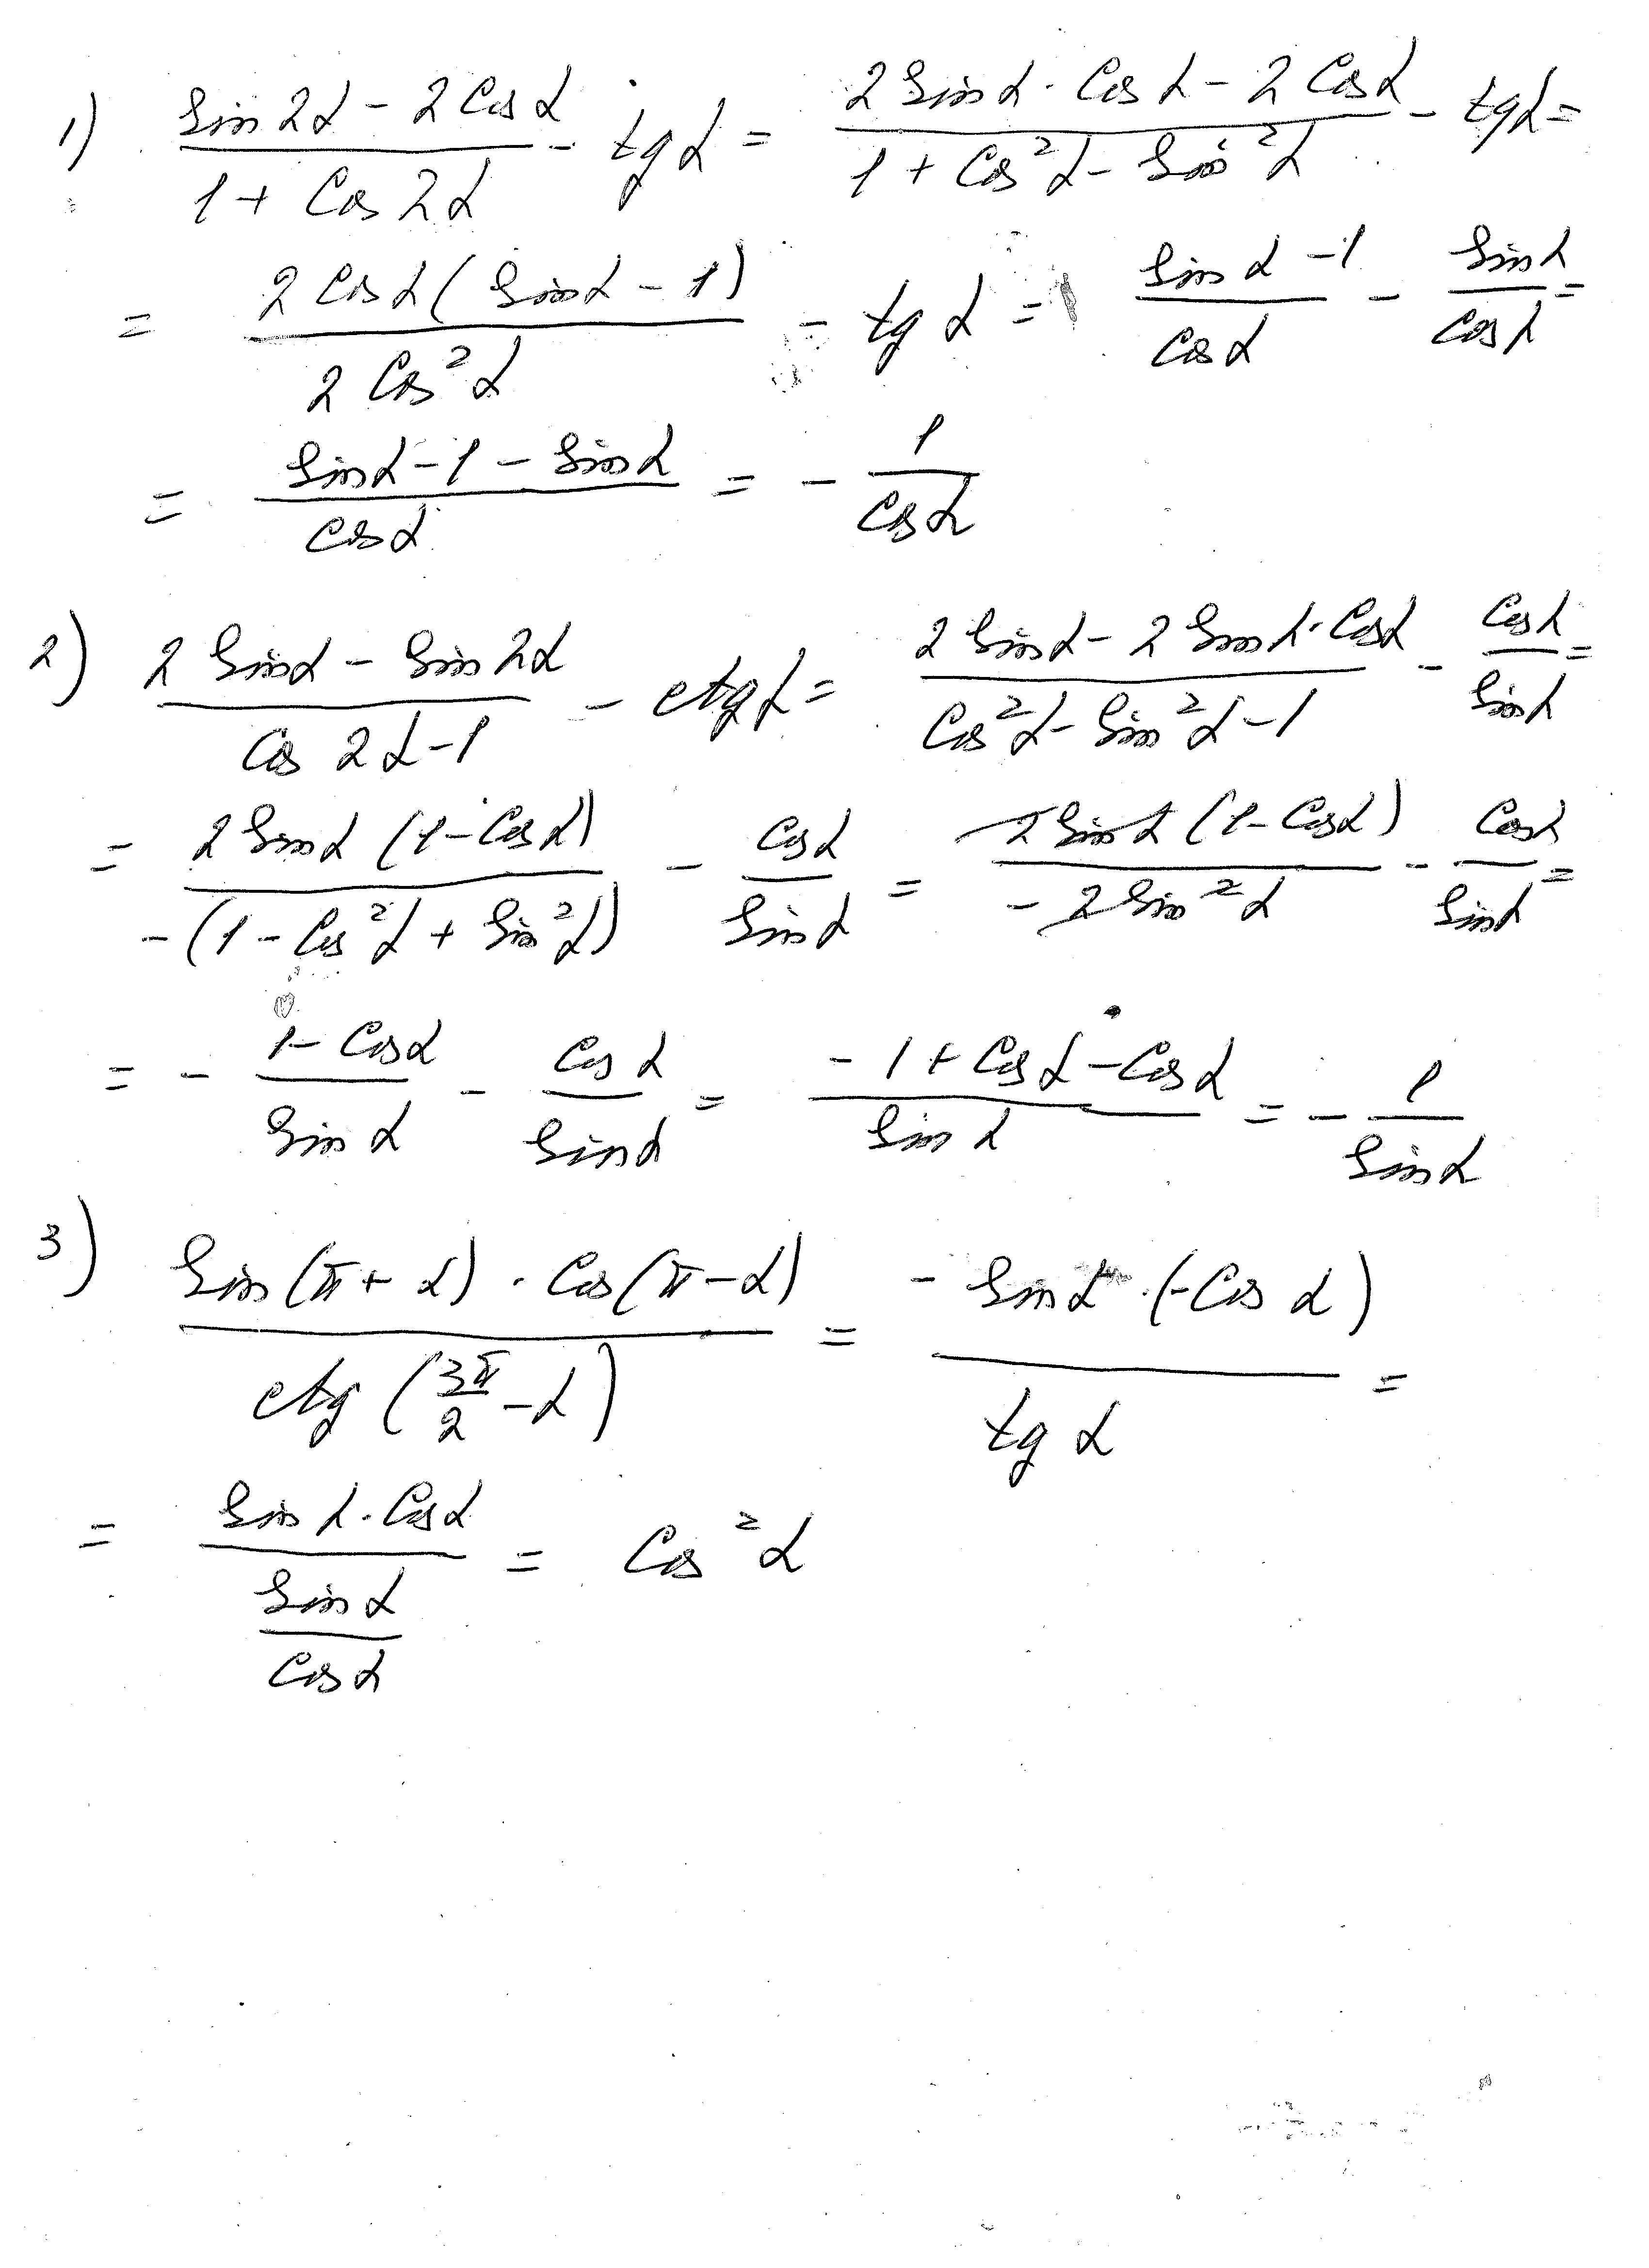 1) (sin 2α - 2 cos α)/(1 + cos 2α) - tg α = (2 sin α · cos α - 2 cos α)/(1 + cos²α - sin²α) - tg α =
= (2 cos α (sin α - 1))/(2 cos²α) - tg α = (sin α - 1)/(cos α) - (sin α)/(cos α) =
= (sin α - 1 - sin α)/(cos α) = - 1/(cos α)
2) (2 sin α - sin 2α)/(cos 2α - 1) - ctg α = (2 sin α - 2 sin α · cos α)/(cos²α - sin²α - 1) - (cos α)/(sin α) =
= (2 sin α (1 - cos α))/(-(1 - cos²α + sin²α)) - (cos α)/(sin α) = (2 sin α (1 - cos α))/(- 2 sin²α) - (cos α)/(sin α) =
= - (1 - cos α)/(sin α) - (cos α)/(sin α) = (-1 + cos α - cos α)/(sin α) = - 1/(sin α)
3) (sin (π + α) · cos (π - α))/(ctg (3π/2 - α)) = (- sin α · (-cos α))/(tg α) =
= (sin α · cos α)/((sin α)/(cos α)) = cos²α